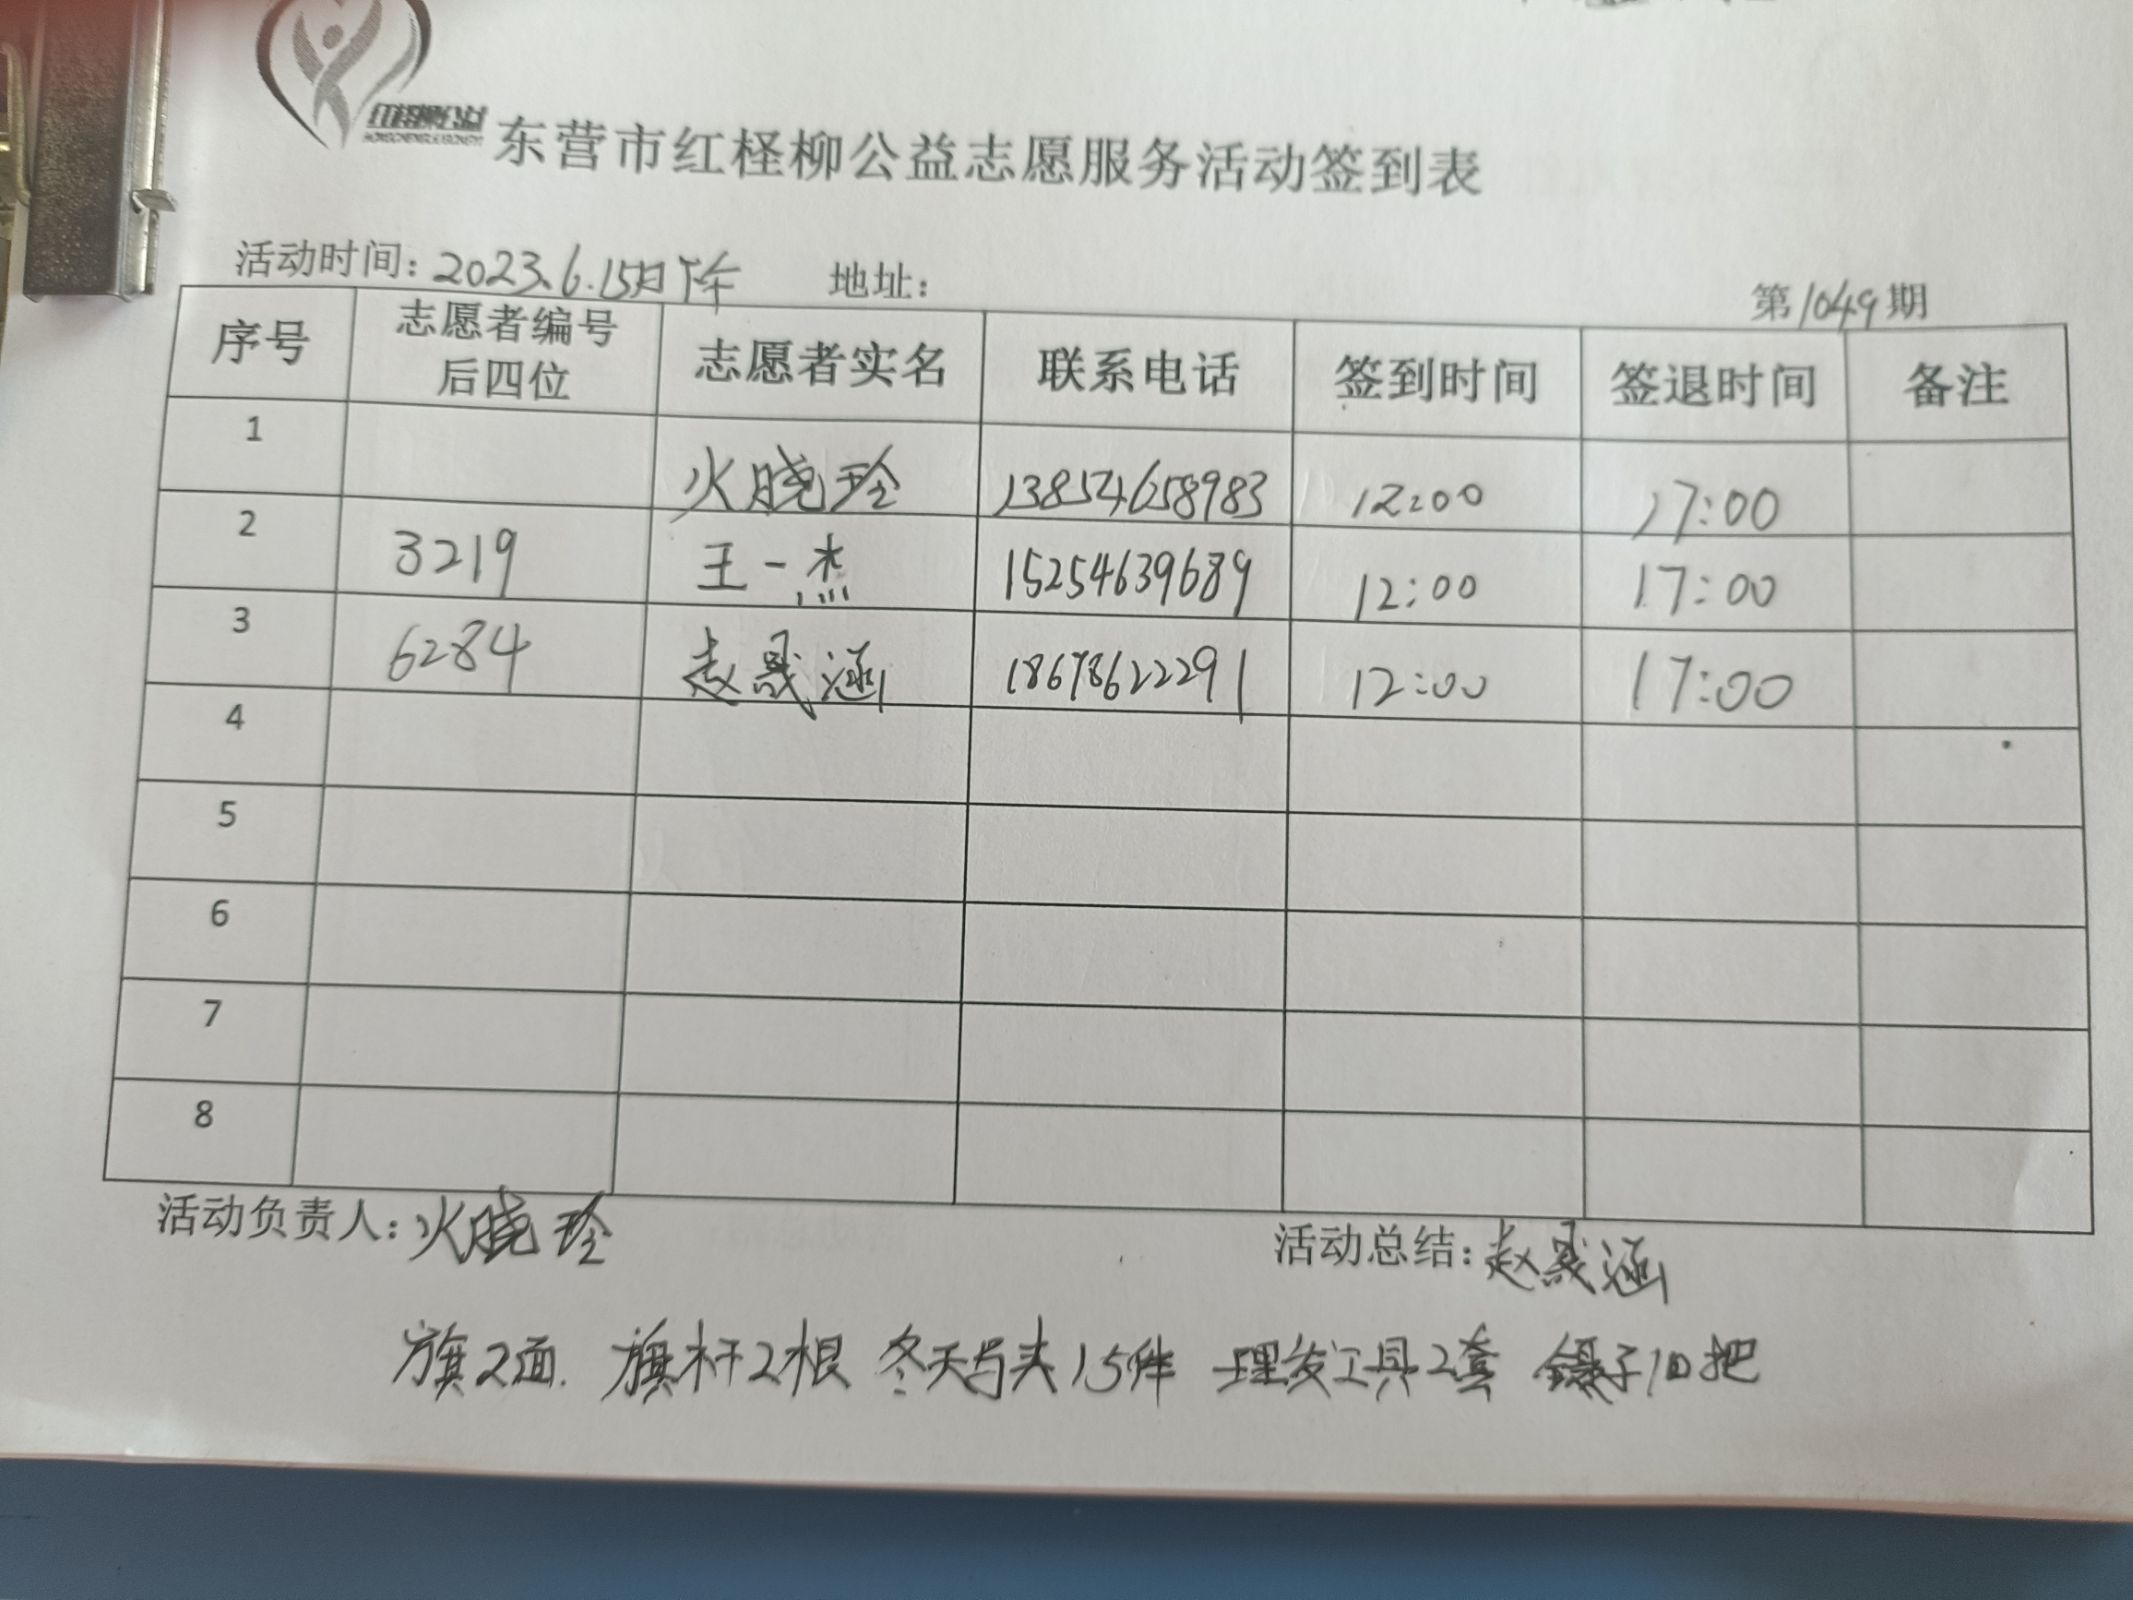 红柽柳公益
东营市红柽柳公益志愿服务活动签到表
活动时间：2023.6.15日下午 地址： 第1049期
序号 志愿者编号后四位 志愿者实名 联系电话 签到时间 签退时间 备注
1 火晓玲 13854658983 12:00 17:00
2 3219 王一杰 15254639689 12:00 17:00
3 6284 赵晟涵 18678622291 12:00 17:00
4
5
6
7
8
活动负责人：火晓玲 活动总结：赵晟涵
旗2面. 旗杆2根 冬天马夹15件 理发工具2套 镊子10把